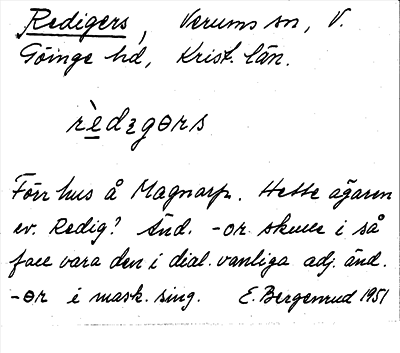 Redigers, Verums sn, V.
Göinge hd, Krist. län.
rèdɛgɵrs
Förr hus å Magnarp. Hette ägaren
ev. Redig? Änd. -ɵr skulle i så
fall vara den i dial. vanliga adj. änd.
-ɵr i mask. sing. E. Bergenrud 1951